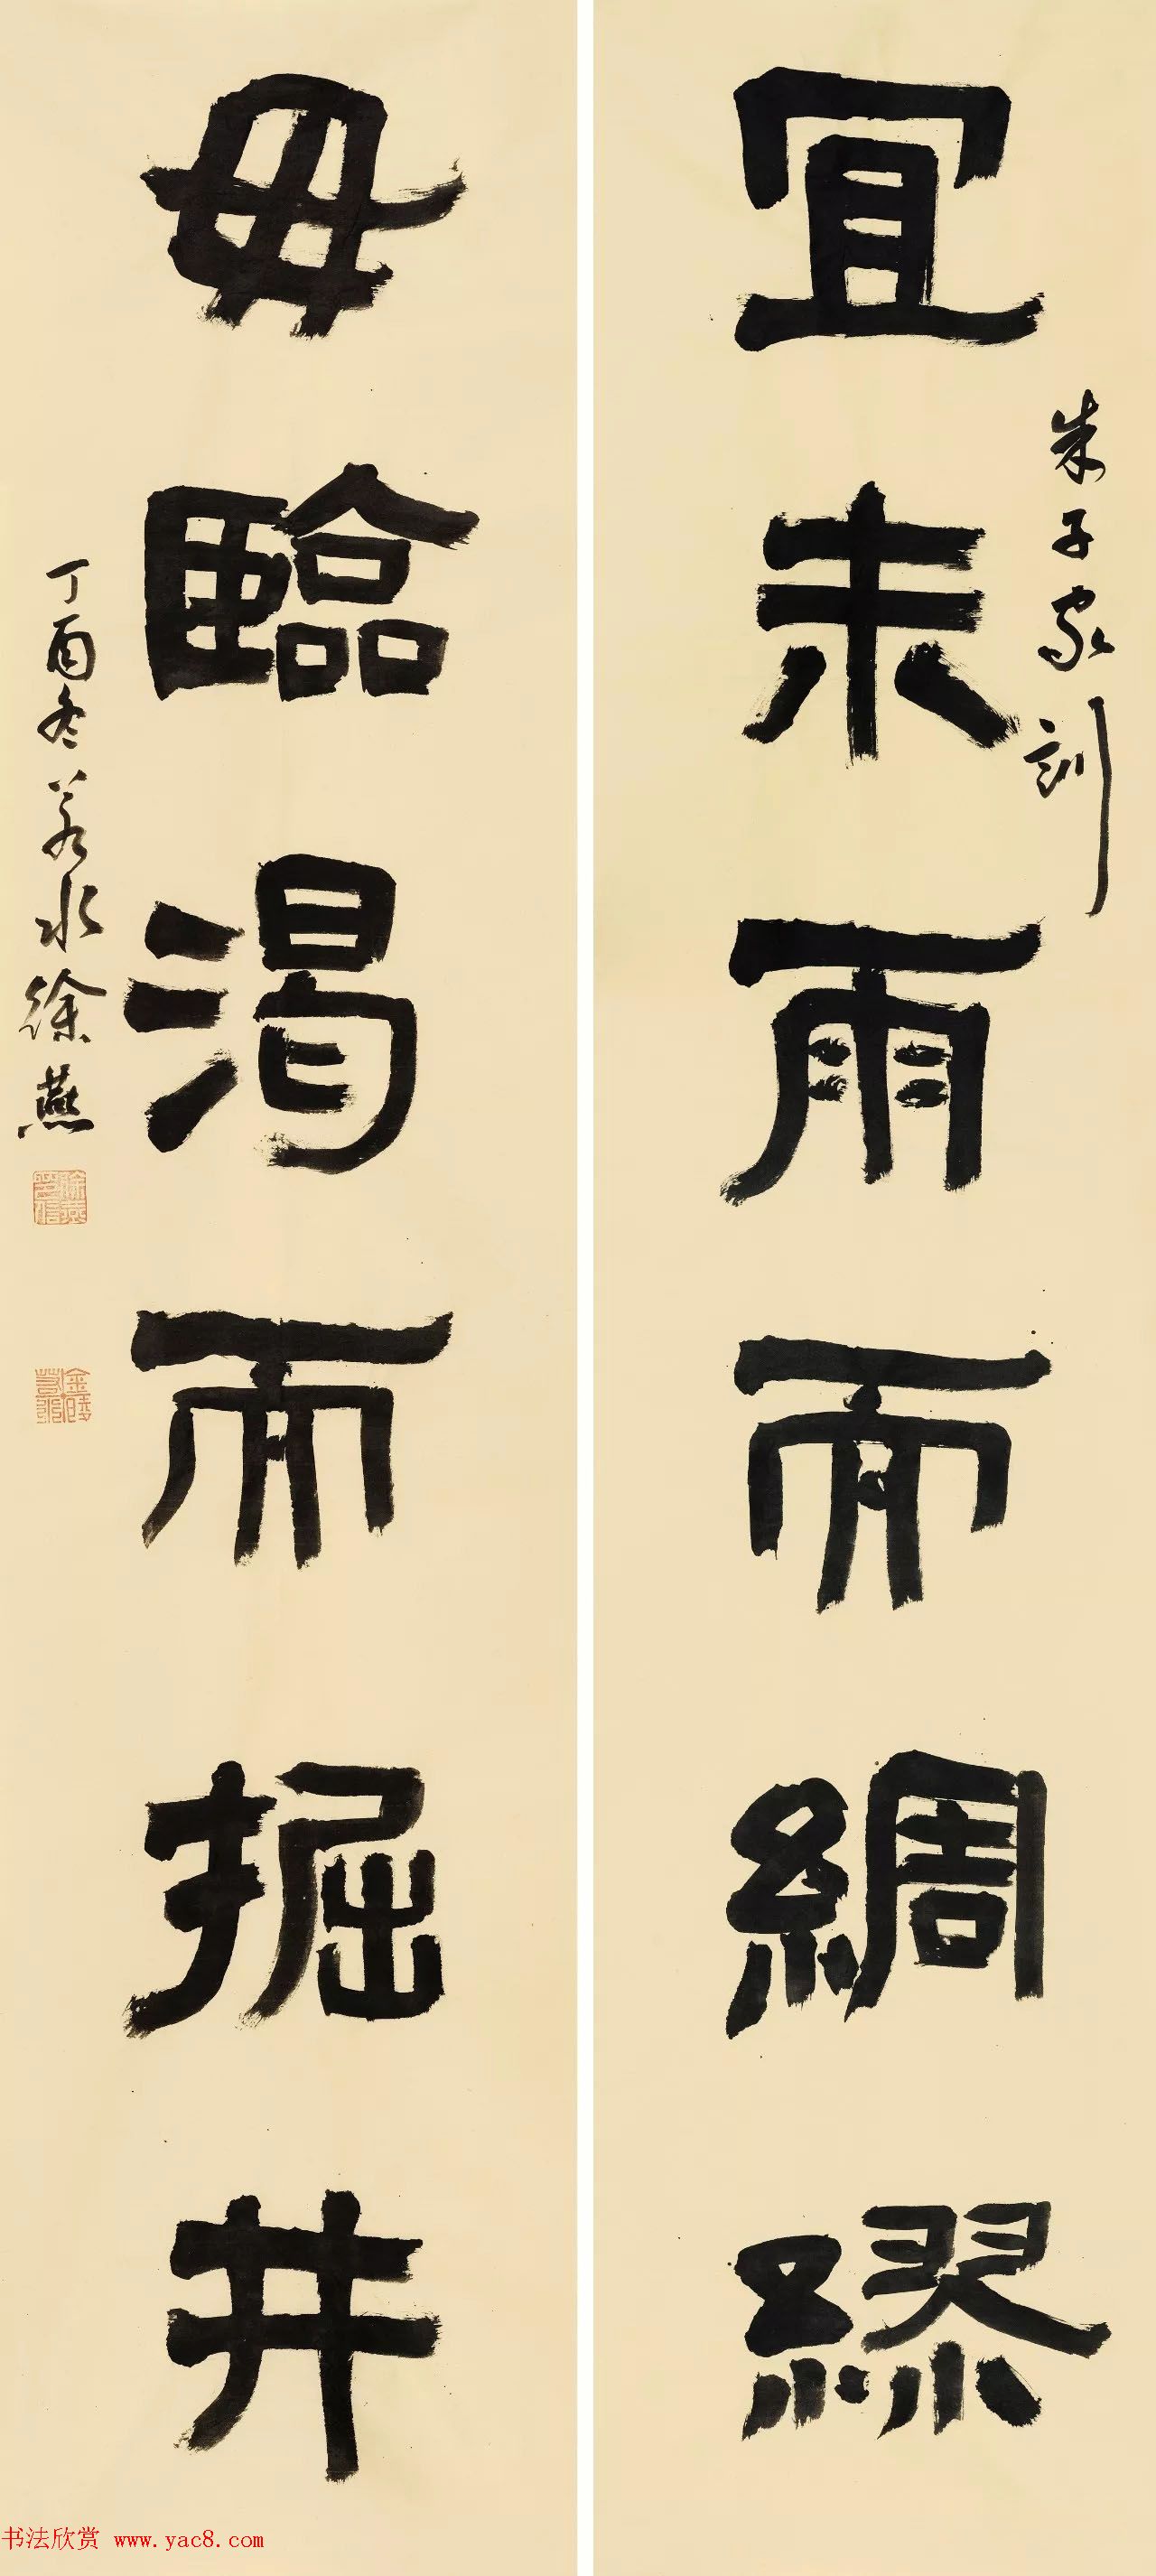 朱子家訓
宜未雨而綢繆
毋臨渴而掘井
丁酉冬若水徐燕
书法欣赏 www.yac8.com